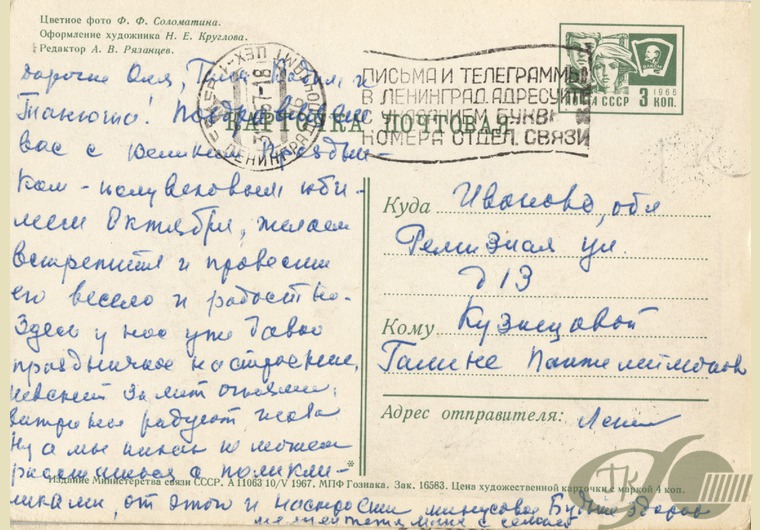 Цветное фото Ф. Ф. Соломатина.
Оформление художника Н. Е. Круглова.
Редактор А. В. Рязанцев.
ПОЧТА СССР 3 КОП. 1966
ВЛКСМ
ЛЕНИНГРАД
ПИСЬМА И ТЕЛЕГРАММЫ
В ЛЕНИНГРАД АДРЕСУЙТЕ
БУКВ
НОМЕРА ОТДЕЛ. СВЯЗИ
КАРТОЧКА ПОЧТОВАЯ
дорогие Оля, и
Танюша! Поздравляем
вас с великим праздни-
ком - полувековым юби-
леем Октября, желаем
встретить и провести
его весело и радостно.
Здесь у нас уже давно
праздничное настроение,
невский залит огнями,
витрины радуют глава
Ну а мы никак не можем
расстаться с поликли-
никами, от этого и настроение минусовое Будьте здоровы
Куда Иваново, обл
Ремизная ул.
д 13
Кому Кузнецовой
Галине Пантелеймонов
Адрес отправителя: Ленин
Издание Министерства связи СССР. А 11063 10/V 1967. МПФ Гознака. Зак. 16583. Цена художественной карточки с маркой 4 коп.
ТК